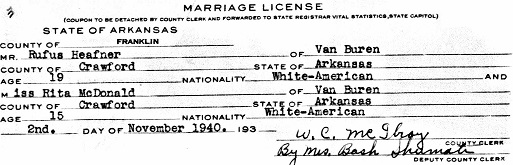 MARRIAGE LICENSE
(COUPON TO BE DETACHED BY COUNTY CLERK AND FORWARDED TO STATE REGISTRAR VITAL STATISTICS, STATE CAPITOL)
STATE OF ARKANSAS
COUNTY OF FRANKLIN
MR. Rufus Heafner OF Van Buren
COUNTY OF Crawford STATE OF Arkansas
AGE 19 NATIONALITY White-American AND
Miss Rita McDonald OF Van Buren
COUNTY OF Crawford STATE OF Arkansas
AGE 15 NATIONALITY White-American
2nd. DAY OF November 1940. 193
W. C. McIlroy
COUNTY CLERK
By Mrs. Bash
DEPUTY COUNTY CLERK